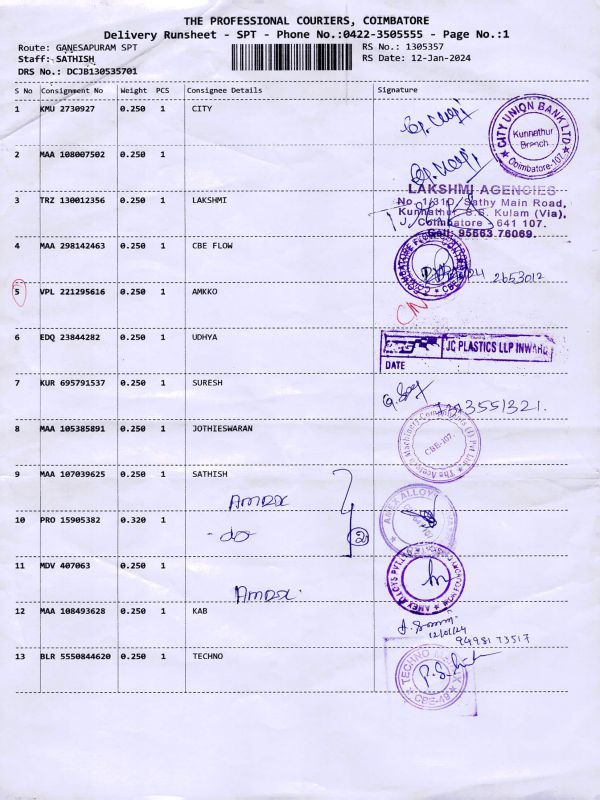 THE PROFESSIONAL COURIERS, COIMBATORE
Delivery Runsheet - SPT - Phone No.:0422-3505555 - Page No.:1
Route: GANESAPURAM SPT
RS No.: 1305357
Staff: SATHISH
RS Date: 12-Jan-2024
DRS No.: DCJB130535701
S No Consignment No Weight PCS Consignee Details Signature
1 KMU 2730927 0.250 1 CITY
CITY UNION BANK LTD
Kunnathur
Branch
Coimbatore-107
2 MAA 108007502 0.250 1
LAKSHMI AGENCIES
3 TRZ 130012356 0.250 1 LAKSHMI
No. 1/310, Sathy Main Road,
Kunnathur S.S. Kulam (Via),
Coimbatore - 641 107.
Cell: 95663 76069.
4 MAA 298142463 0.250 1 CBE FLOW
2653012
5 VPL 221295616 0.250 1 AMKKO
6 EDQ 23844282 0.250 1 UDHYA
JC PLASTICS LLP INWARD
DATE
7 KUR 695791537 0.250 1 SURESH
8 MAA 105385891 0.250 1 JOTHIESWARAN
CBE-107
9 MAA 107039625 0.250 1 SATHISH
AMEX ALLOYS
10 PRO 15905382 0.320 1
- do -
2
11 MDV 407063 0.250 1
AMEX ALLOYS PVT LTD
12 MAA 108493628 0.250 1 KAB
12/01/24
9498173517
13 BLR 5550844620 0.250 1 TECHNO
TECHNO
CBE-49